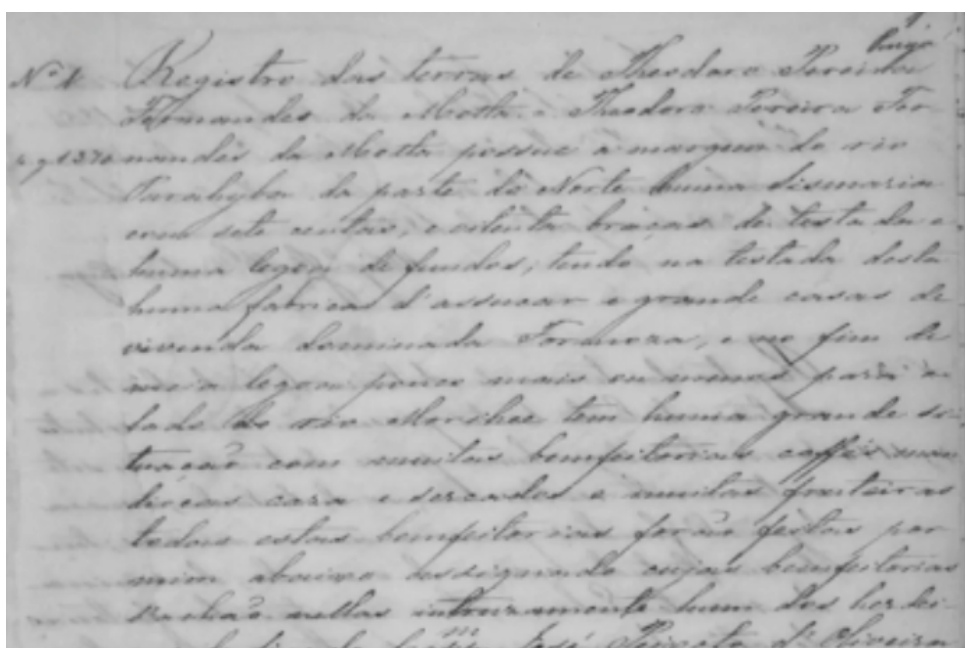 Nº 1 Registro das terras de Theodoro Pereira
Fernandes da Motta. Theodoro Pereira Fer
nandes da Motta possue a margem do rio
Parahyba da parte do Norte huma sismaria
com sete centas, e oitenta braças de testada e
huma legoa de fundos, tendo na testada desta
huma fabrica d'assucar e grande casas de
vivenda Dominada Formoza, e no fim de
meia legoa pouco mais ou menos para o
lado do rio tem huma grande si-
tuação com muitas bemfeitorias caffés man
diocas caza e sercados e muitas fruteiras
todas estas bemfeitorias forão feitas por
mim abaixo assignado cujas bemfeitorias
nellas hum dos herdei-
José Peixoto d'Oliveira